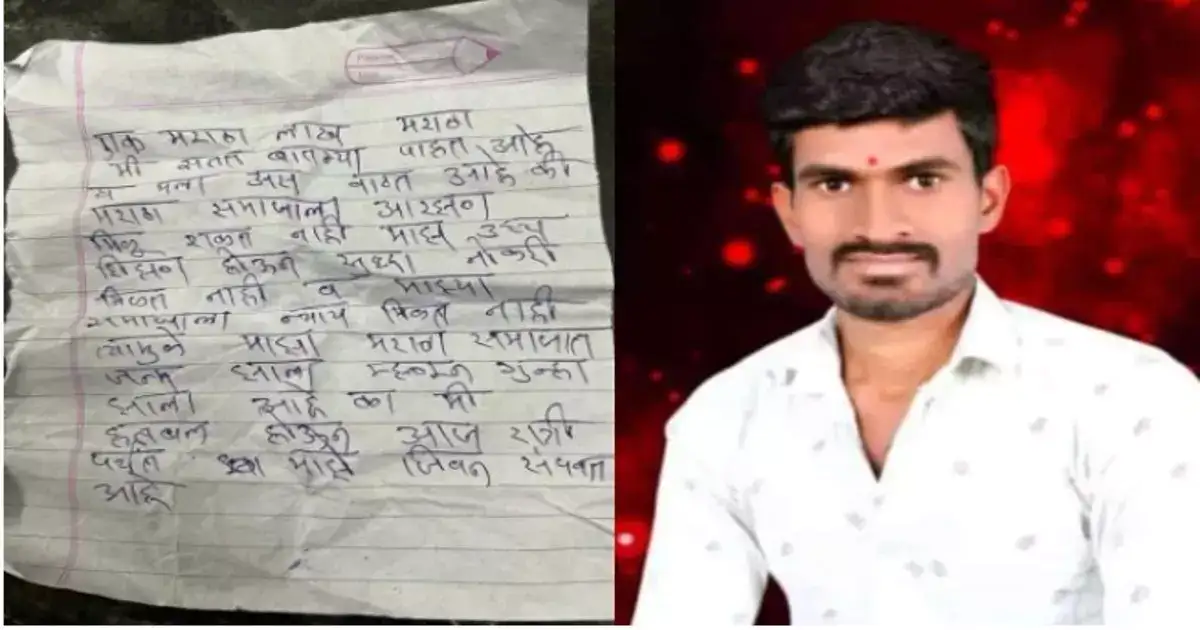 एक मराठा लाख मराठा
मी सतत बातम्या पाहत आहे
व मला असं वाटत आहे की
मराठा समाजाला आरक्षण
मिळू शकत नाही माझं उच्च
शिक्षण होऊन सुध्दा नोकरी
मिळत नाही व माझ्या
समाजाला न्याय मिळत नाही
त्यामुळे माझा मराठा समाजात
जन्म झाला म्हणून गुन्हा
झाला आहे का मी
हतबल होऊन आज रात्री
पर्यंत माझे जिवन संपवत
आहे